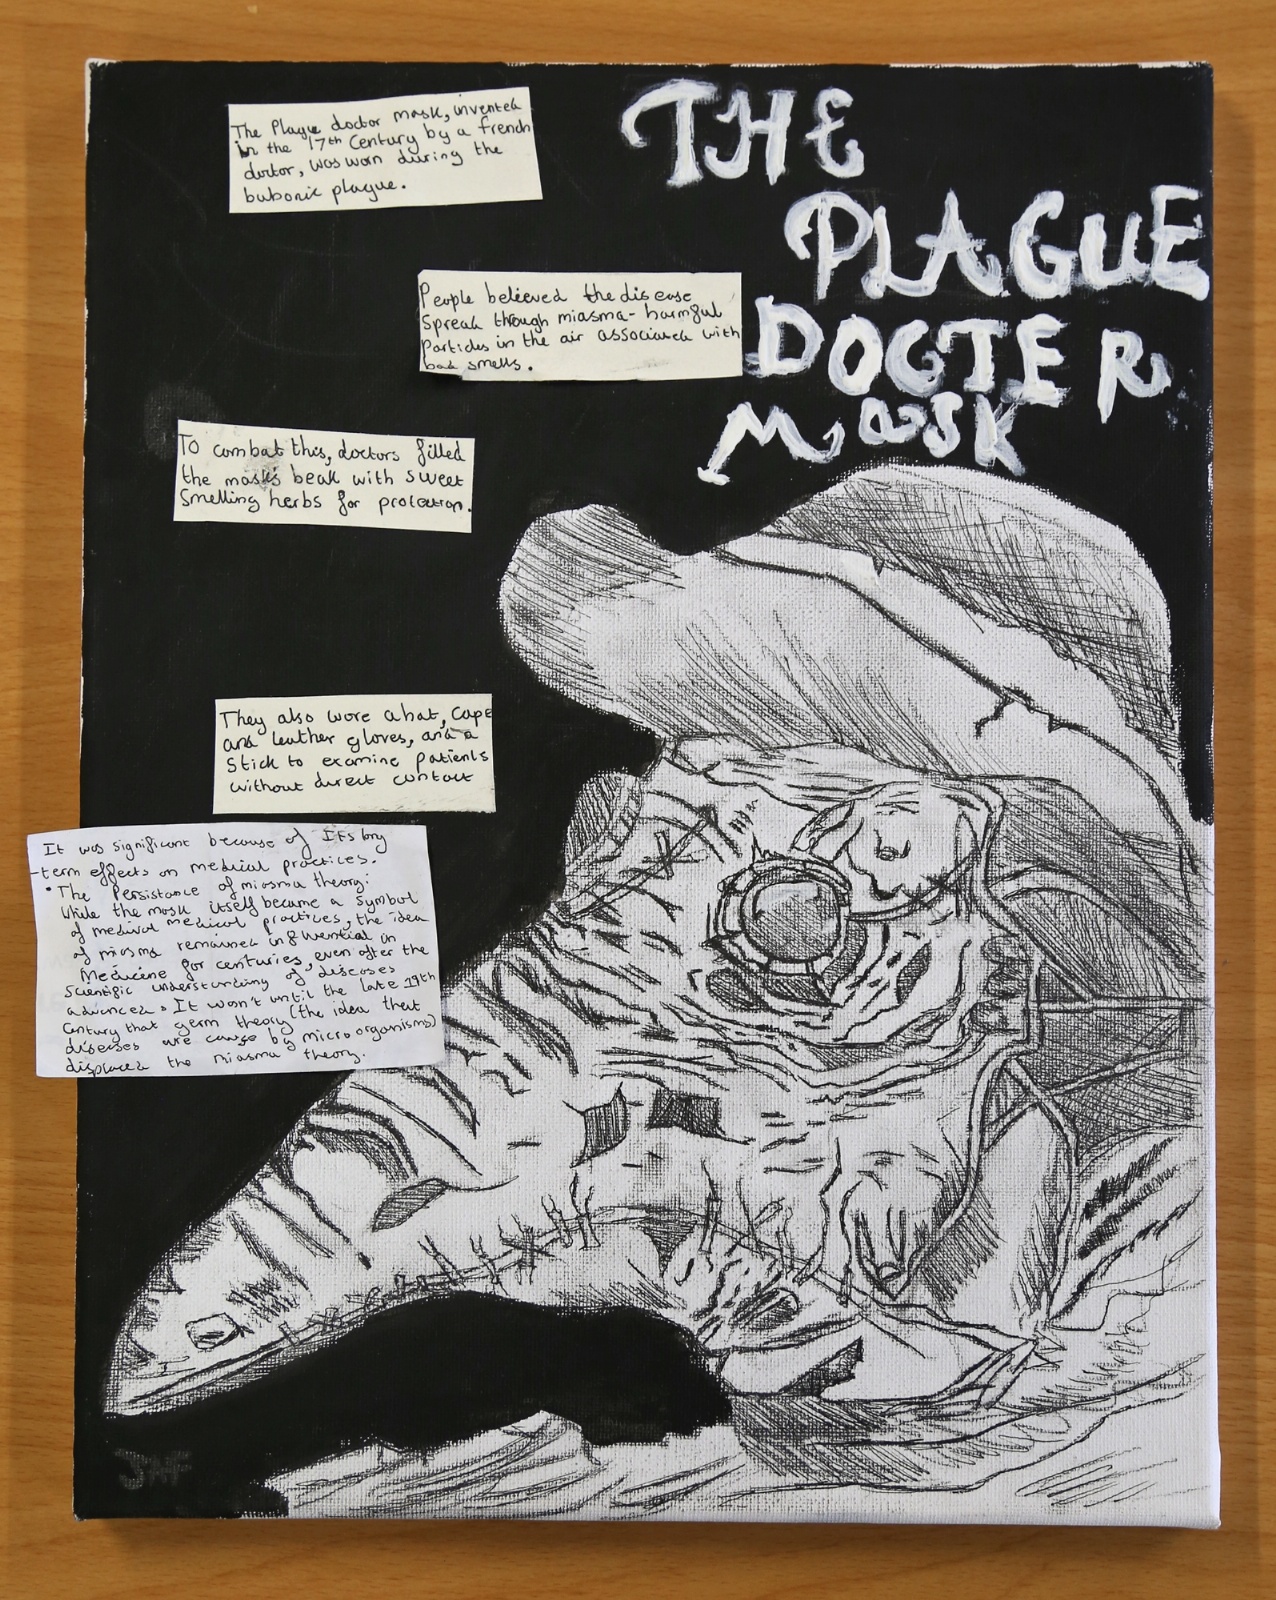 THE
PLAGUE
DOCTER
MASK
The Plague doctor mask, invented
in the 17th Century by a french
doctor, was worn during the
bubonic plague.
People believed the disease
spread through miasma - harmful
particles in the air associated with
bad smells.
To combat this, doctors filled
the masks beak with sweet
smelling herbs for protection.
They also wore a hat, cape
and leather gloves, and a
stick to examine patients
without direct contact
It was significant because of ITs long
-term effects on medical practices.
• The Persistance of miasma theory:
While the mask itself became a symbol
of medival medical practices, the idea
of miasma remained influential in
Medecine for centuries, even after the
scientific understanding of diseases
advanced. It wasn't until the late 19th
century that germ theory (the idea that
diseases are cause by micro organisms)
displaced the miasma theory.
JMF